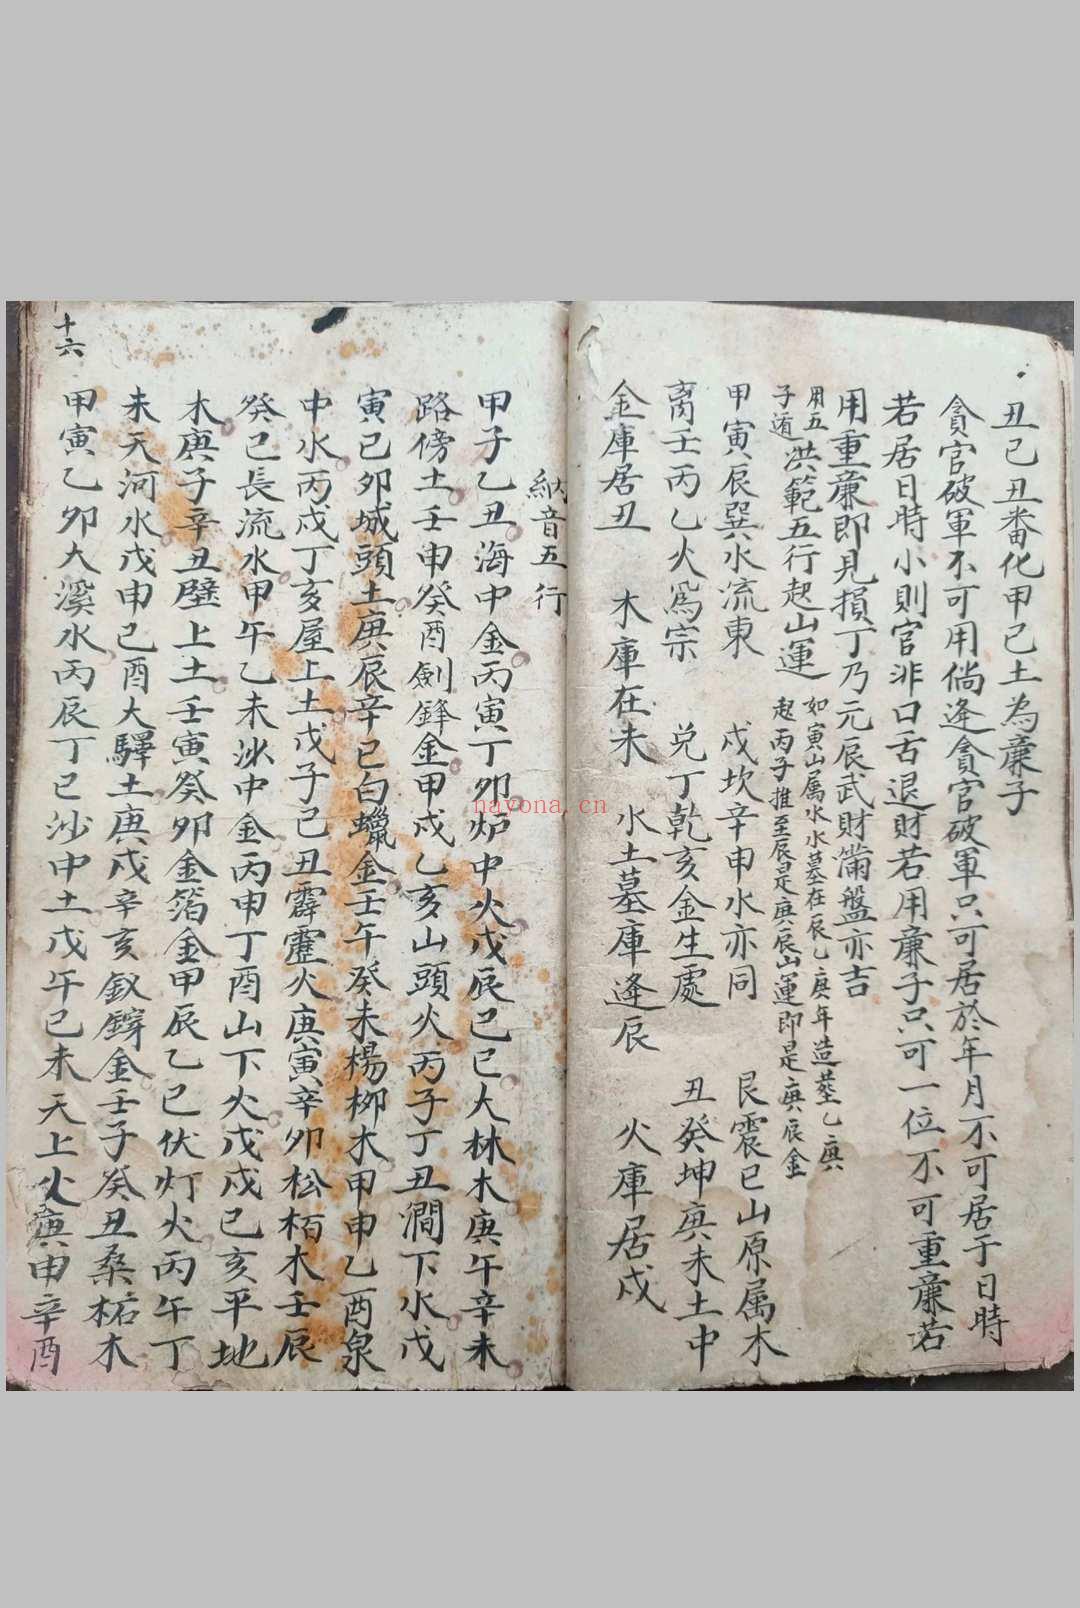 丑己丑番化甲己土為廉子
貪官破軍不可用倘逢貪官破軍只可居於年月不可居于日時
若居日時小則官非口舌退財若用廉子只可一位不可重廉若
用重廉即見損丁乃元辰武財滿盤亦吉
用五
子遁
洪範五行起山運
如寅山属水水墓在辰乙庚年造塟乙庚
起丙子推至辰是庚辰山運即是庚辰金
甲寅辰巽水流東 戌坎辛申水亦同 艮震巳山原属木
离壬丙乙火爲宗 兑丁乾亥金生處 丑癸坤庚未土中
金庫居丑 木庫在未 水土墓庫逢辰 火庫居戌
納音五行
甲子乙丑海中金丙寅丁卯炉中火戊辰己巳大林木庚午辛未
路傍土壬申癸酉劍鋒金甲戌乙亥山頭火丙子丁丑澗下水戊
寅己卯城頭土庚辰辛巳白蠟金壬午癸未楊柳木甲申乙酉泉
中水丙戌丁亥屋上土戊子己丑霹靂火庚寅辛卯松栢木壬辰
癸巳長流水甲午乙未沙中金丙申丁酉山下火戊戌己亥平地
木庚子辛丑壁上土壬寅癸卯金箔金甲辰乙巳伏灯火丙午丁
未天河水戊申己酉大驛土庚戌辛亥釵鐸金壬子癸丑桑柘木
甲寅乙卯大溪水丙辰丁巳沙中土戊午己未天上火庚申辛酉
十六
nayona.cn